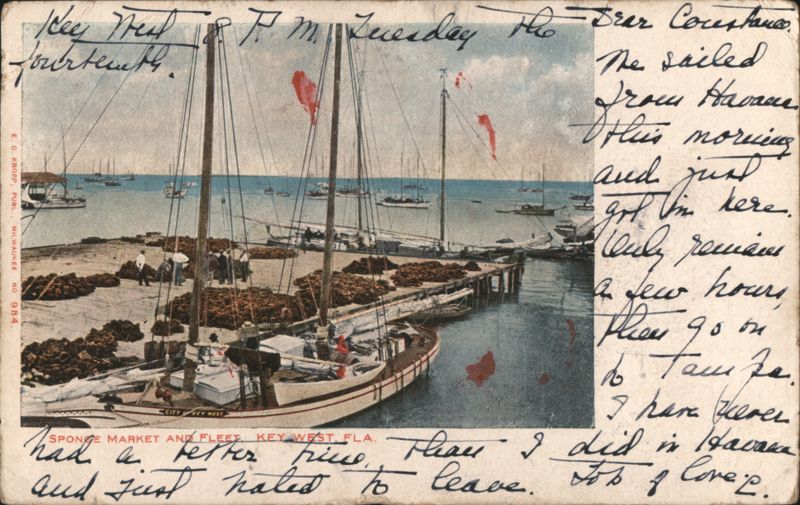 Key West 8 P.M. Tuesday the
fourteenth.
Dear Constance.
We sailed
from Havana
this morning
and just
got in here.
Only remain
a few hours,
then go on
to Tampa.
I have never
had a better time than I did in Havana
and just hated to leave. Lots of love
E. C. KROPP, PUBL., MILWAUKEE NO. 984
CITY OF KEY WEST
SPONGE MARKET AND FLEET, KEY WEST, FLA.